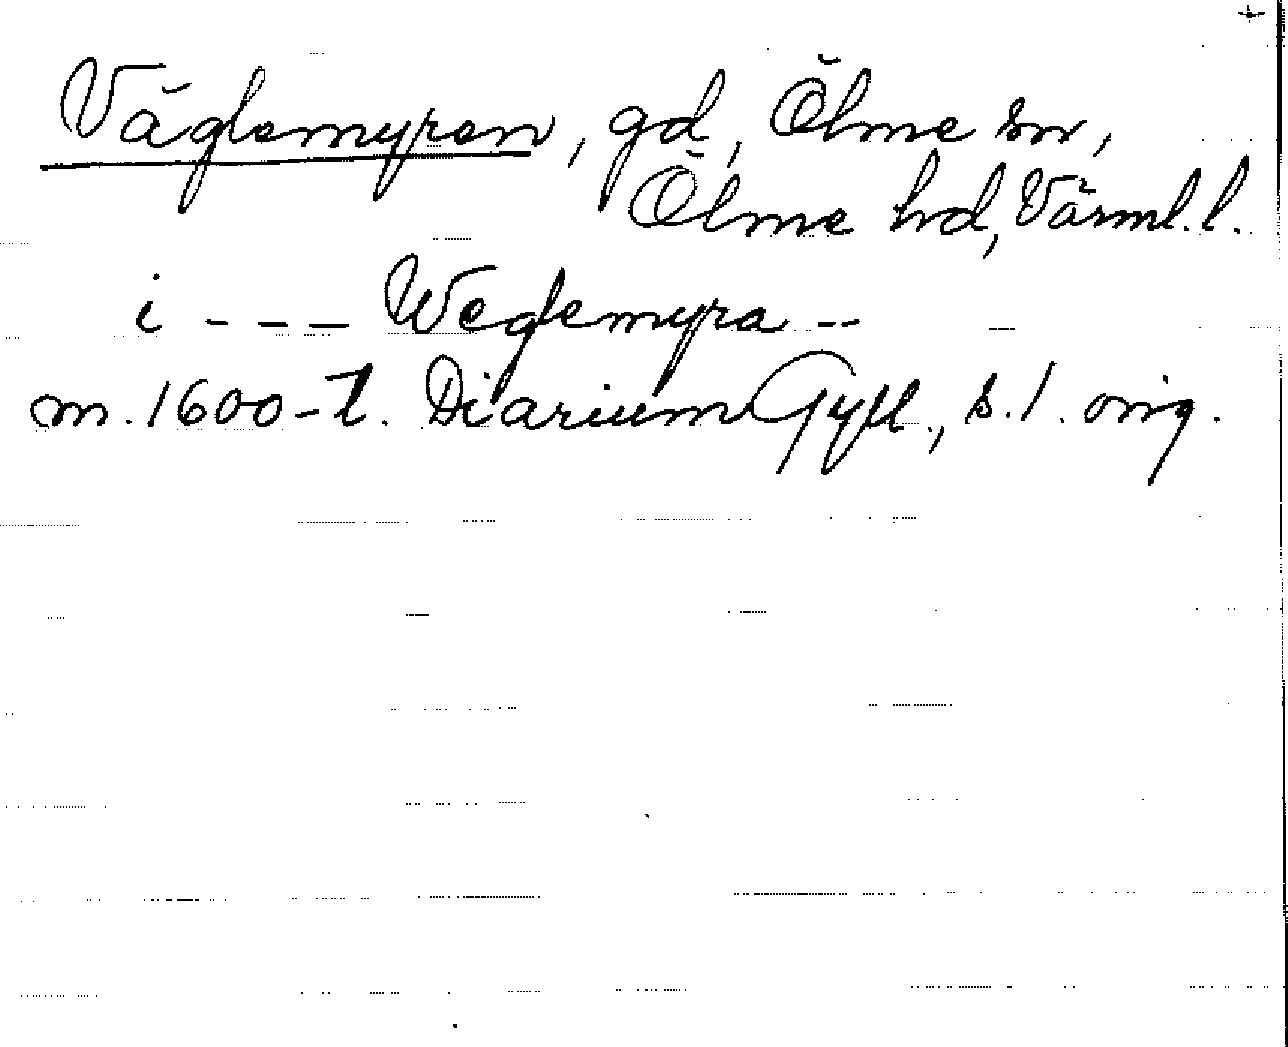 Väglemyren, gd, Ölme sn,
Ölme hd, Värml. l.
i - - - Weglemyra - -
m. 1600-t. Diarium Gyll., s. 1. orig.